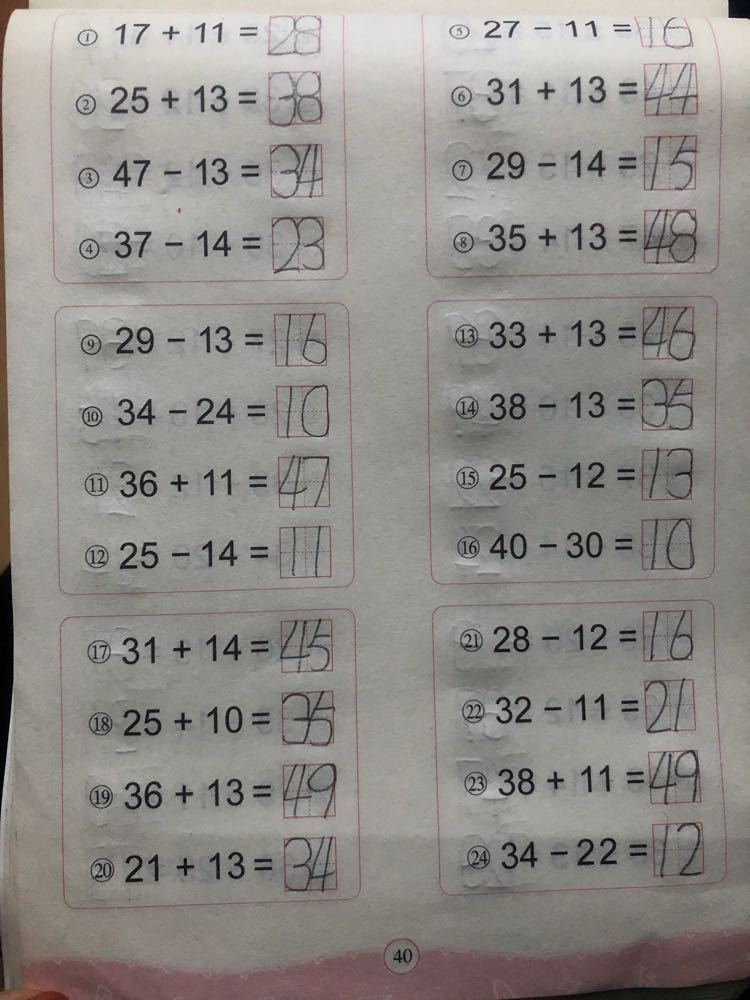 ① 17 + 11 = 28
② 25 + 13 = 38
③ 47 − 13 = 34
④ 37 − 14 = 23
⑤ 27 − 11 = 16
⑥ 31 + 13 = 44
⑦ 29 − 14 = 15
⑧ 35 + 13 = 48
⑨ 29 − 13 = 16
⑩ 34 − 24 = 10
⑪ 36 + 11 = 47
⑫ 25 − 14 = 11
⑬ 33 + 13 = 46
⑭ 38 − 13 = 35
⑮ 25 − 12 = 13
⑯ 40 − 30 = 10
⑰ 31 + 14 = 45
⑱ 25 + 10 = 35
⑲ 36 + 13 = 49
⑳ 21 + 13 = 34
㉑ 28 − 12 = 16
㉒ 32 − 11 = 21
㉓ 38 + 11 = 49
㉔ 34 − 22 = 12
40